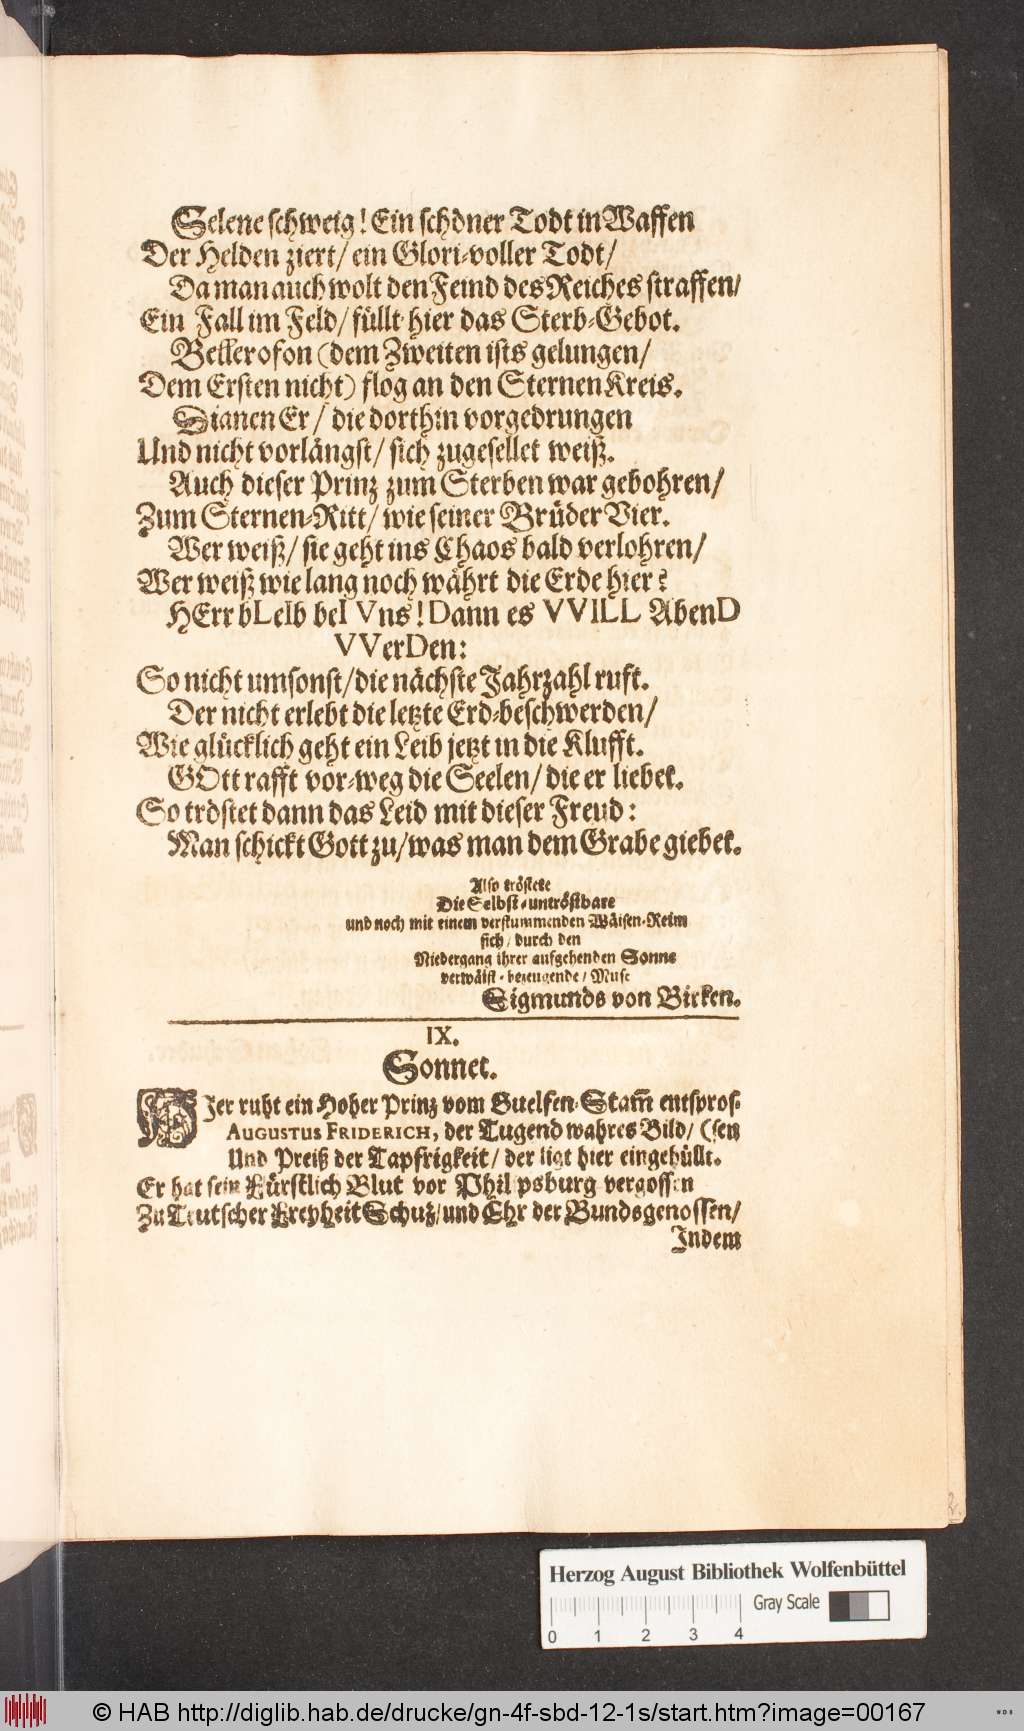 Selene schweig! Ein schöner Todt in Waffen
Der Helden ziert/ ein Glori-voller Todt/
Da man auch wolt den Feind des Reiches straffen/
Ein Fall im Feld/ füllt hier das Sterb-Gebot.
Bellerofon (dem Zweiten ists gelungen/
Dem Ersten nicht) flog an den Sternen Kreis.
Dianen Er/ die dorthin vorgedrungen
Und nicht vorlängst/ sich zugesellet weiß.
Auch dieser Prinz zum Sterben war gebohren/
Zum Sternen-Ritt/ wie seiner Brüder Vier.
Wer weiß/ sie geht ins Chaos bald verlohren/
Wer weiß wie lang noch währt die Erde hier?
HErr bLeIb beI Vns! Dann es VVILL AbenD
VVerDen:
So nicht umsonst/ die nächste Jahrzahl ruft.
Der nicht erlebt die letzte Erd-beschwerden/
Wie glücklich geht ein Leib jetzt in die Klufft.
GOtt rafft vor-weg die Seelen/ die er liebet.
So tröstet dann das Leid mit dieser Freud:
Man schickt Gott zu/ was man dem Grabe giebet.
Also tröstete
Die Selbst-untröstbare
und noch mit einem verstummenden Wäisen-Reim
sich/ durch den
Niedergang ihrer aufgehenden Sonne
verwäist-bezeugende/ Muse
Sigmunds von Birken.
IX.
Sonnet.
HJer ruht ein Hoher Prinz vom Guelfen-Stam̃ entspros-
AUGUSTUS FRIDERICH, der Tugend wahres Bild/ (sen
Und Preiß der Tapfrigkeit/ der ligt hier eingehüllt.
Er hat sein Fürstlich Blut vor Philipsburg vergossen
Zu Teutscher Freyheit Schuz/ und Ehr der Bundsgenossen/
Indem
Herzog August Bibliothek Wolfenbüttel
Gray Scale
0 1 2 3 4
© HAB http://diglib.hab.de/drucke/gn-4f-sbd-12-1s/start.htm?image=00167